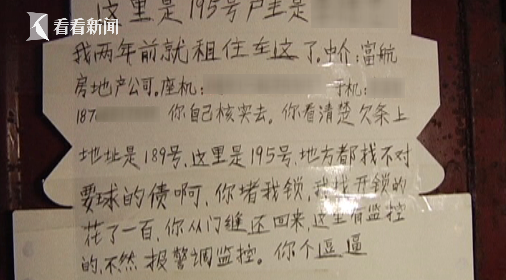 看看新闻
这里是195号户主是
我两年前就租住车这了.中介:富航
房地产公司.座机: 手机:
187 你自己核实去。你看清楚欠条上
地址是189号,这里是195号.地方都找不对
要球的债啊,你堵我锁,我找开锁的
花了一百,你从门缝还回来,这里有监控
的,不然报警调监控。你个逗逼